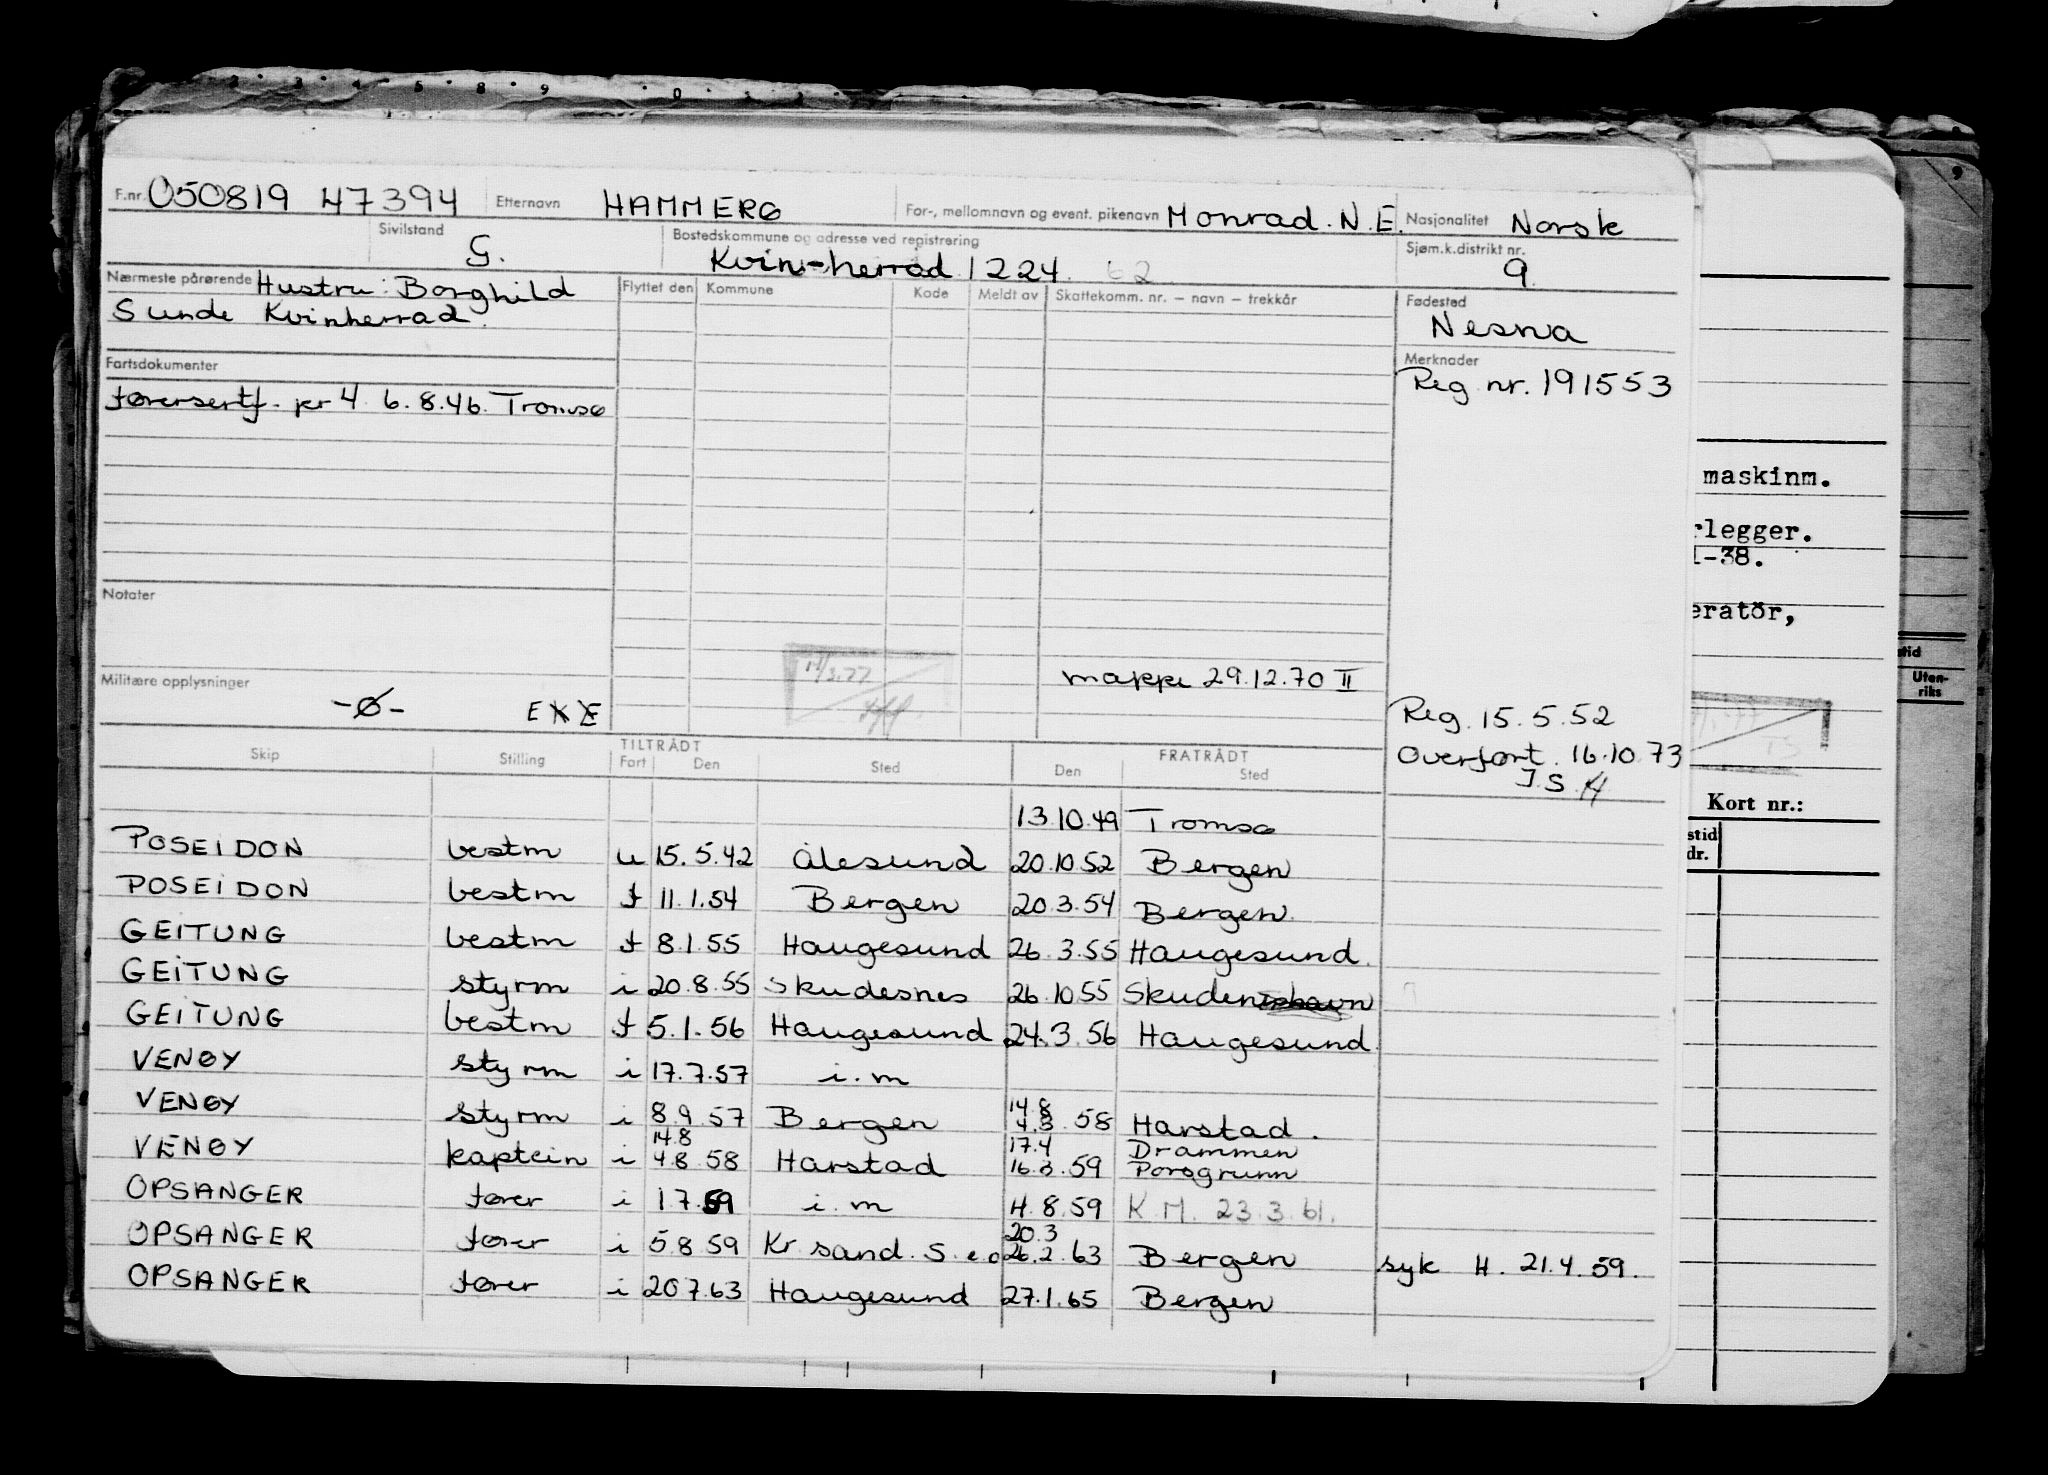 F.nr. 050819 47394 Etternavn HAMMERØ For-, mellomnavn og event. pikenavn Monrad. N.E. Nasjonalitet Norsk
Sivilstand G. Bostedskommune og adresse ved registrering Kvin-herrad 1224. 62 Sjøm.k.distrikt nr. 9.
Nærmeste pårørende Hustru: Borghild Flyttet den Kommune Kode Meldt av Skattekomm. nr. – navn – trekkår Fødested
Sunde Kvinherrad. Nesna
Fartsdokumenter Merknader
førersertf. pr 4. 6.8.46. Tromsø Reg nr. 191553
maskinm.
rlegger.
1-38.
eratör,
Notater
mappe 29.12.70 II
Militære opplysninger -Ø- EXE
Reg. 15.5.52
Overført. 16.10.73
J.S.H
stid
Uten-
riks
Kort nr.:
stid
dr.
TILTRÅDT FRATRÅDT
Skip Stilling Fart Den Sted Den Sted
13.10.49 Tromsø
POSEIDON bestm u 15.5.42 Ålesund 20.10.52 Bergen
POSEIDON bestm f 11.1.54 Bergen 20.3.54 Bergen.
GEITUNG bestm f 8.1.55 Haugesund 26.3.55 Haugesund.
GEITUNG styrm i 20.8.55 Skudesnes 26.10.55 Skuden
GEITUNG bestm f 5.1.56 Haugesund 24.3.56 Haugesund.
VENØY styrm i 17.7.57 i.m
VENØY styrm i 8.9.57 Bergen 14.8 4.3.58 Harstad.
VENØY kaptein i 14.8 4.8.58 Harstad 17.4 16.3.59 Drammen Porsgrunn
OPSANGER fører i 1.7.59 i.m 4.8.59 K.M. 23.3.61.
OPSANGER fører i 5.8.59 Kr.sand.S. e.o 20.3 26.2.63 Bergen syk H. 21.4.59.
OPSANGER fører i 20.7.63 Haugesund 27.1.65 Bergen